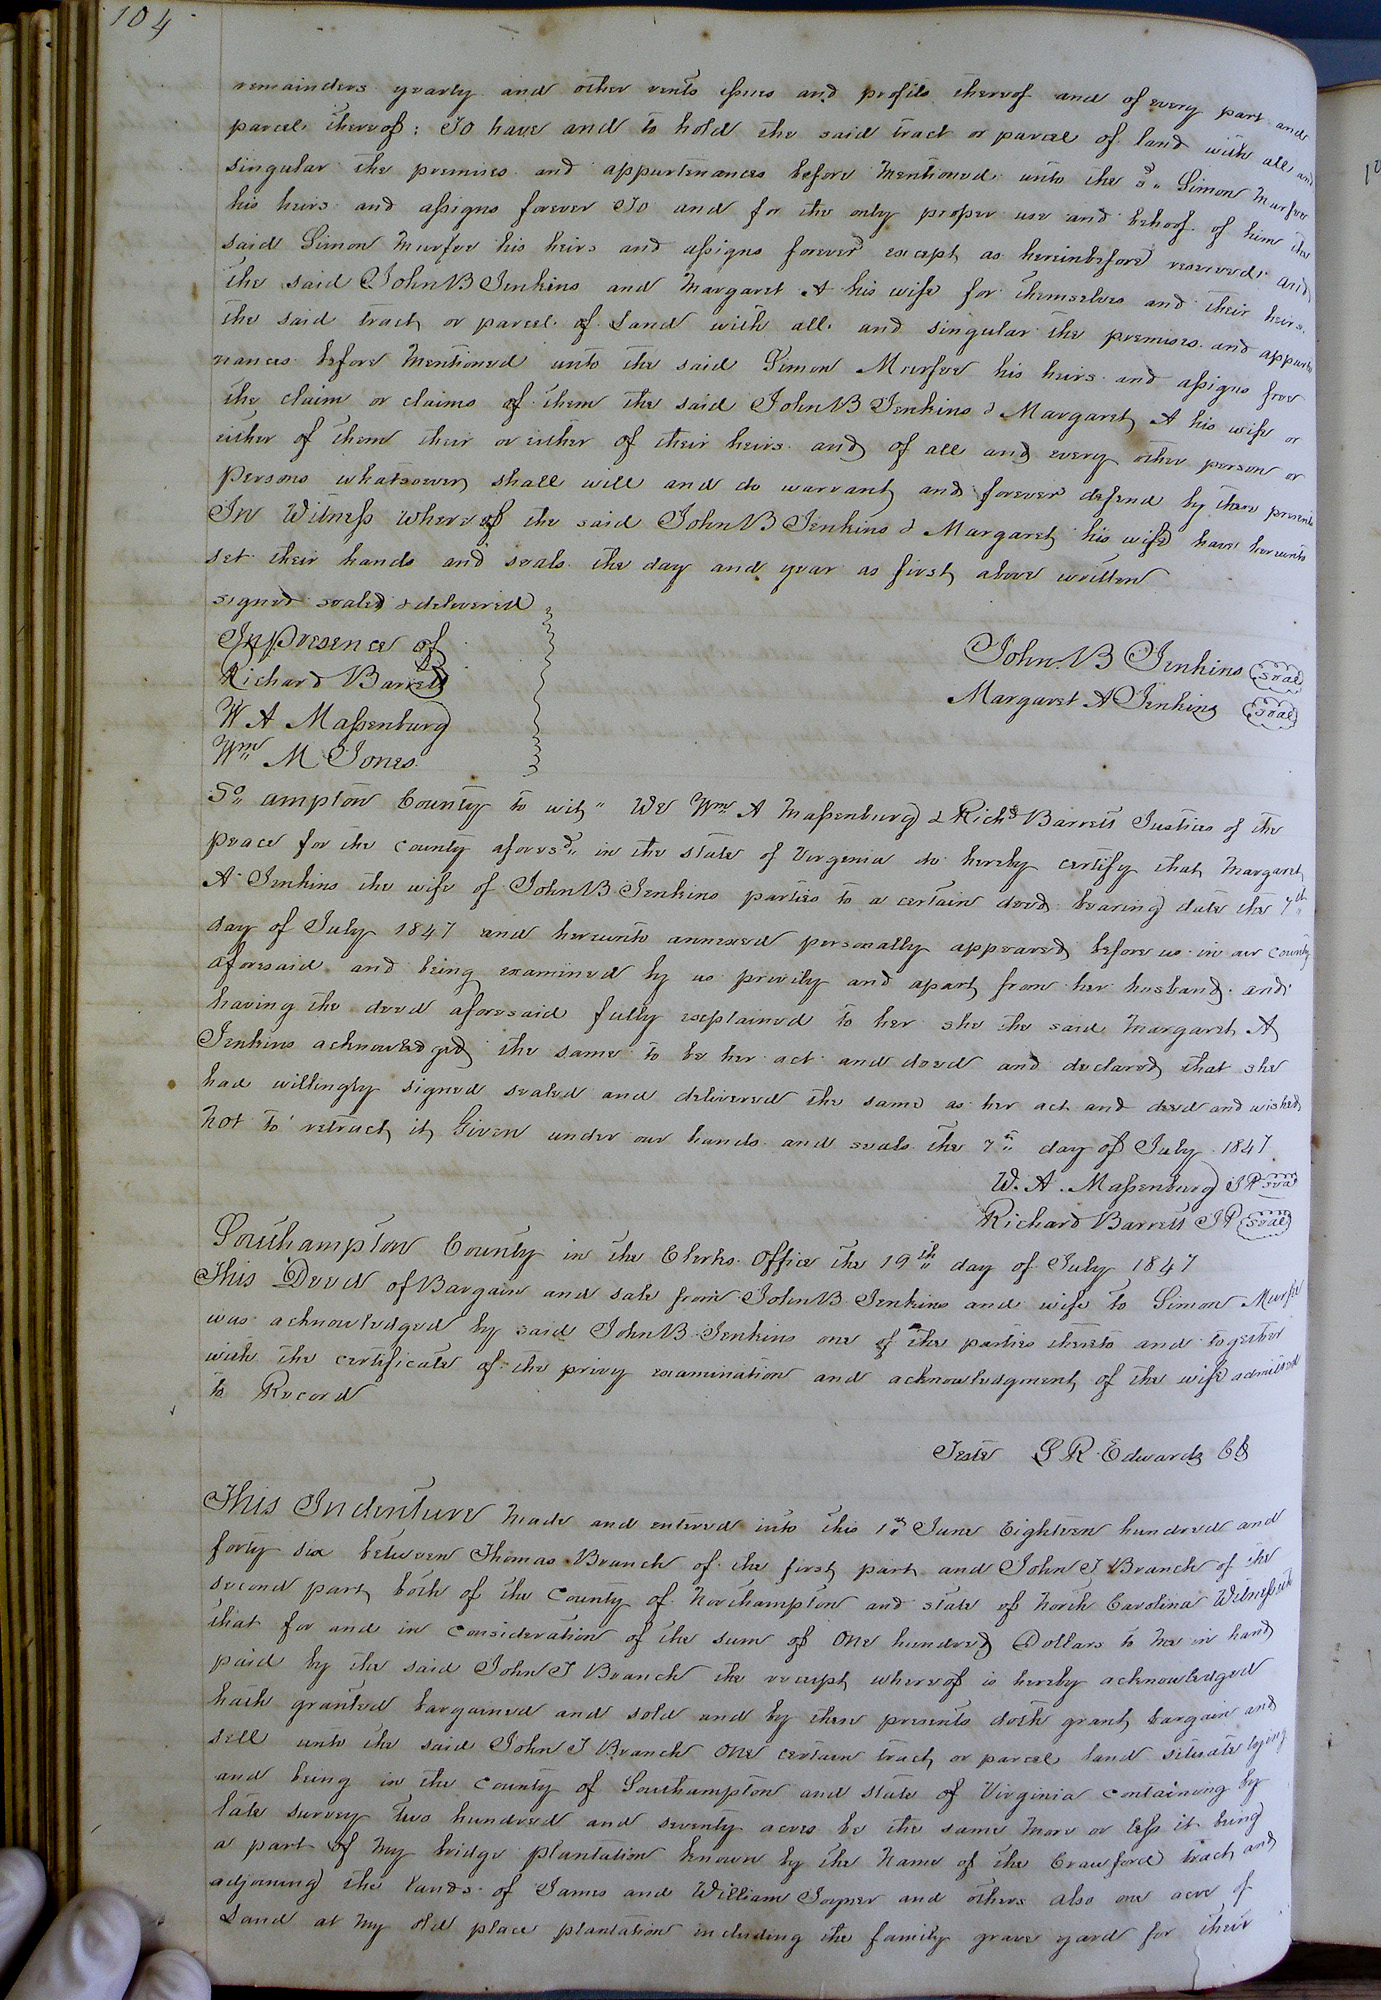 104
remainders yearly and other rents issues and profits thereof and of every part and
parcel thereof: To have and to hold the said tract or parcel of land with all and
singular the premises and appurtenances before mentioned unto the sd. Simon Murfee
his heirs and assigns forever To and for the only proper use and behoof of him the
said Simon Murfee his heirs and assigns forever except as hereinbefore reserved and
the said John B Jenkins and Margaret A his wife for themselves and their heirs
the said tract or parcel of Land with all and singular the premises and appurte
nances before mentioned unto the said Simon Murfee his heirs and assigns free
the claim or claims of them the said John B Jenkins & Margaret A his wife or
either of them their or either of their heirs and of all and every other person or
persons whatsoever shall will and do warrant and forever defend by these presents
In Witness whereof the said John B Jenkins & Margaret his wife have hereunto
set their hands and seals the day and year as first above written
signed sealed & delivered
In presence of
Richard Barrett
W A Massenburg
Wm M Jones
John B Jenkins seal
Margaret A Jenkins seal
So ampton County to wit" We Wm A Massenburg & Richd Barrett Justices of the
peace for the County aforesd in the state of Virginia do hereby certify that Margaret
A Jenkins the wife of John B Jenkins parties to a certain deed bearing date the 7th
day of July 1847 and hereunto annexed personally appeared before us in our county
aforesaid and being examined by us privily and apart from her husband and
having the deed aforesaid fully explained to her she the said Margaret A
Jenkins acknowledged the same to be her act and deed and declared that she
had willingly signed sealed and delivered the same as her act and deed and wished
not to retract it Given under our hands and seals the 7th day of July 1847
W. A. Massenburg JP seal
Richard Barrett JP seal
Southampton County in the Clerks Office the 19th day of July 1847
This Deed of Bargain and sale from John B Jenkins and wife to Simon Murfee
was acknowledged by said John B Jenkins one of the parties thereto and together
with the certificate of the privy examination and acknowledgment of the wife admitted
to Record
Teste L R Edwards Clk
This Indenture made and entered into this 1st June Eighteen hundred and
forty six between Thomas Branch of the first part and John T Branch of the
second part both of the County of Northampton and state of North Carolina Witnesseth
that for and in consideration of the sum of One hundred Dollars to me in hand
paid by the said John T Branch the receipt whereof is hereby acknowledged
hath granted bargained and sold and by these presents doth grant bargain and
sell unto the said John T Branch One certain tract or parcel land situate lying
and being in the County of Southampton and state of Virginia containing by
late survey two hundred and seventy acres be the same more or less it being
a part of my bridge plantation known by the name of the Crawford tract and
adjoining the lands of James and William Joyner and others also one acre of
Land at my old place plantation including the family grave yard for their